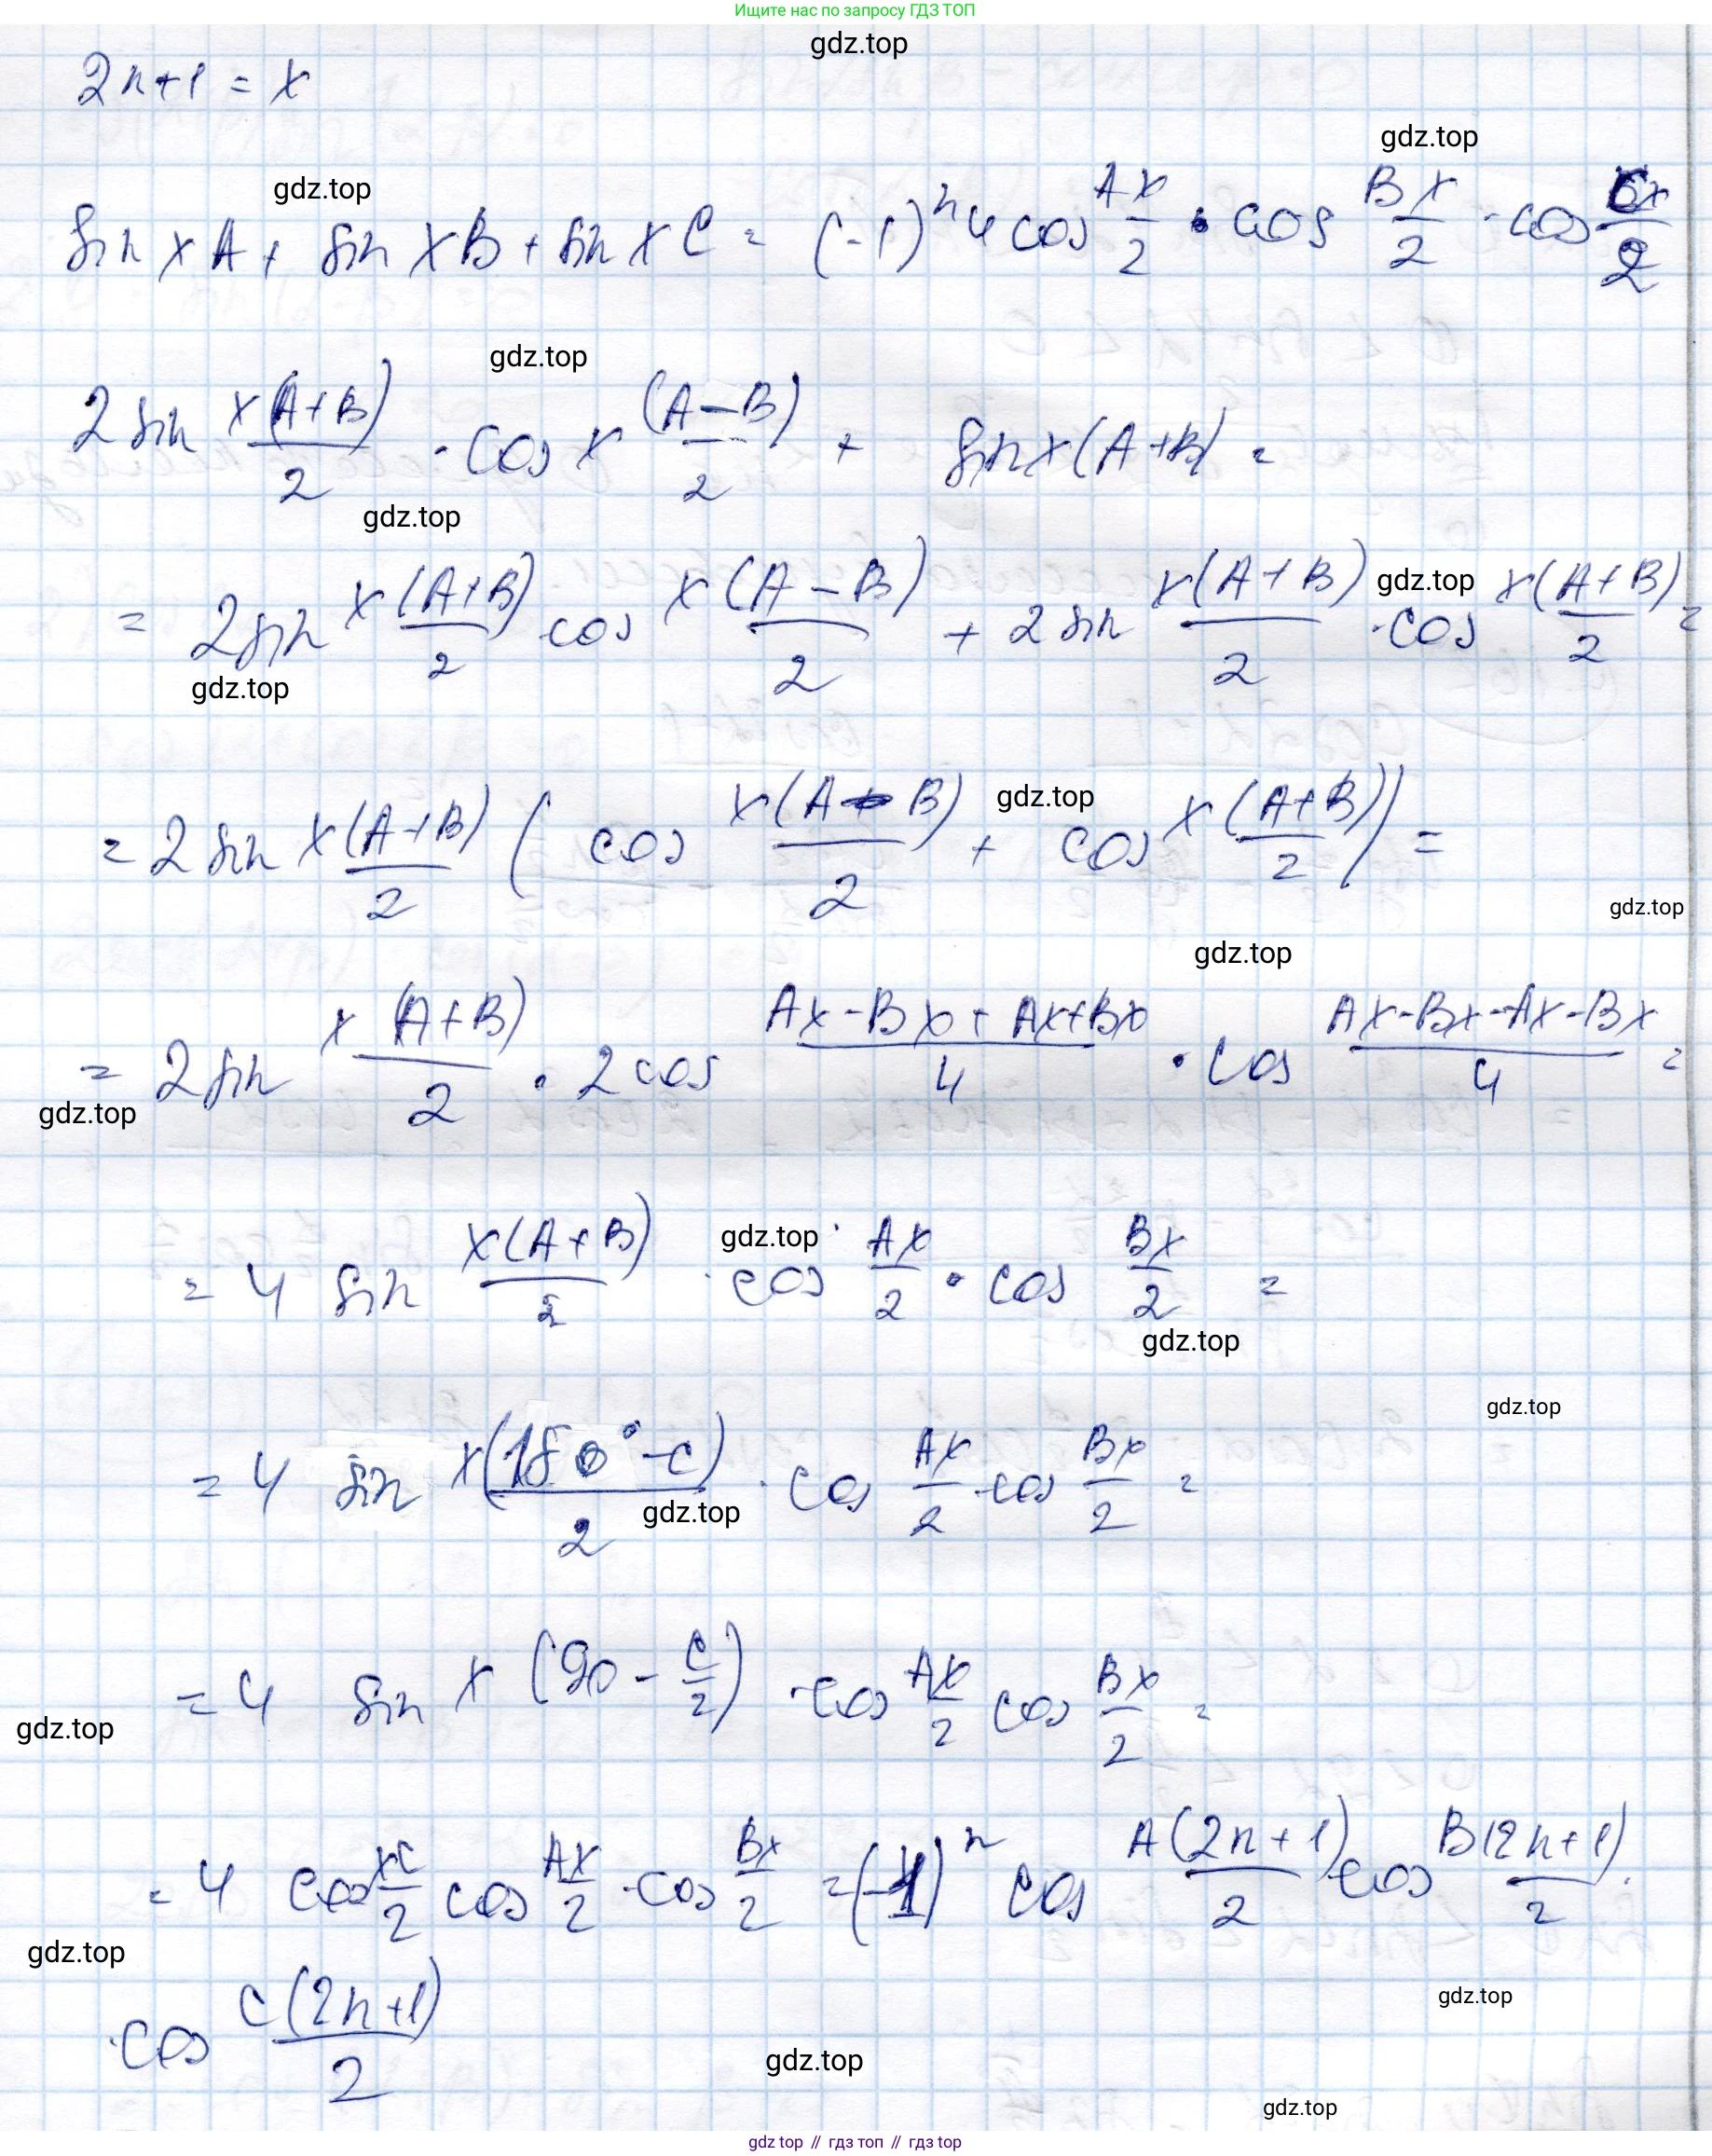 Ищите нас по запросу ГДЗ ТОП
gdz.top
2n+1 = x
gdz.top
gdz.top
sin xA + sin xB + sin xC = (-1)^n 4 cos Ax/2 · cos Bx/2 · cos Cx/2
gdz.top
2 sin x(A+B)/2 · cos x (A-B)/2 + sin x(A+B) =
gdz.top
= 2 sin x(A+B)/2 · cos x(A-B)/2 + 2 sin x(A+B)/2 · cos x(A+B)/2 =
gdz.top
gdz.top
= 2 sin x(A+B)/2 ( cos x(A-B)/2 + cos x(A+B)/2 ) =
gdz.top
gdz.top
gdz.top
= 2 sin x(A+B)/2 · 2 cos Ax-Bx+Ax+Bx/4 · cos Ax-Bx-Ax-Bx/4 =
gdz.top
= 4 sin x(A+B)/2 · cos Ax/2 · cos Bx/2 =
gdz.top
gdz.top
gdz.top
= 4 sin x(180°-C)/2 · cos Ax/2 · cos Bx/2 =
gdz.top
= 4 sin x (90 - C/2) · cos Ax/2 cos Bx/2 =
gdz.top
= 4 cos xC/2 cos Ax/2 · cos Bx/2 = (-1)^n cos A(2n+1)/2 · cos B(2n+1)/2 ·
gdz.top
· cos C(2n+1)/2
gdz.top
gdz.top
gdz.top
gdz top // гдз топ // гдз top